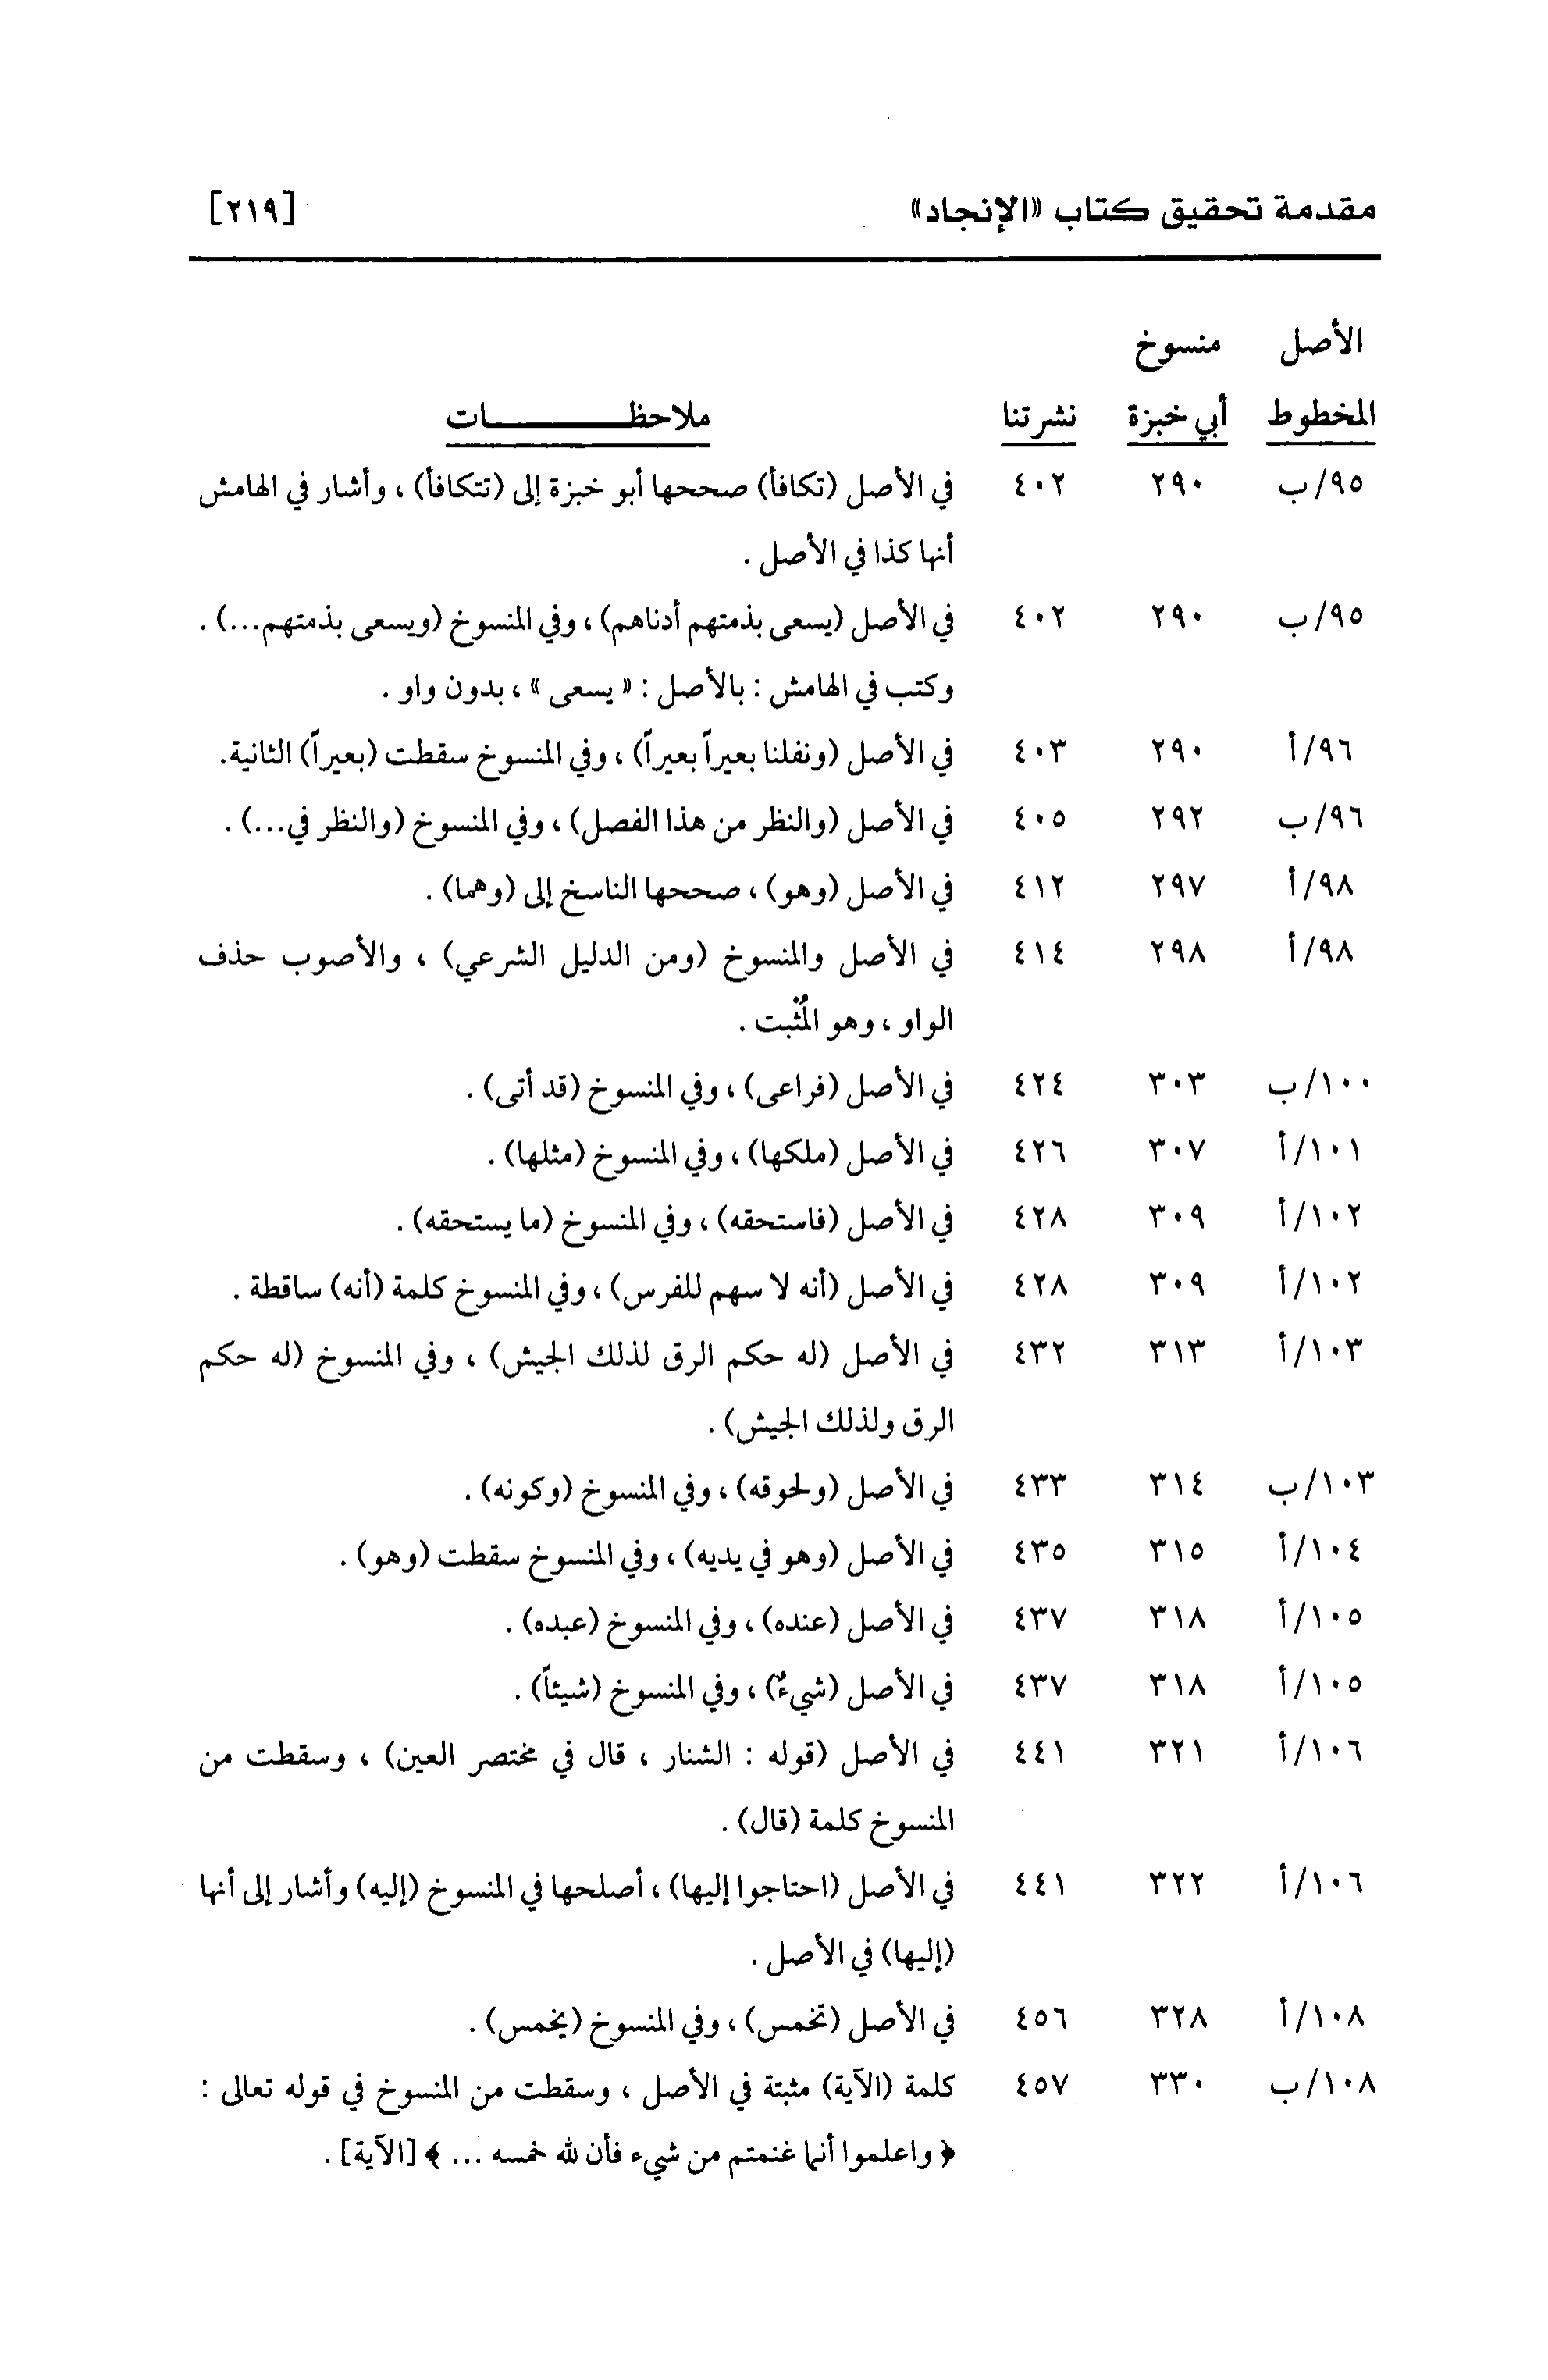 مقدمة تحقيق كتاب «الإنجاد» [٢١٩]
الأصل منسوخ
المخطوط أبي خبزة نشرتنا ملاحظـــــــــات
٩٥/ب ٢٩٠ ٤٠٢ في الأصل (تكافأ) صححها أبو خبزة إلى (تتكافأ) ، وأشار في الهامش
أنها كذا في الأصل .
٩٥/ب ٢٩٠ ٤٠٢ في الأصل (يسعى بذمتهم أدناهم) ، وفي المنسوخ (ويسعى بذمتهم...) .
وكتب في الهامش : بالأصل : « يسعى » ، بدون واو .
٩٦/أ ٢٩٠ ٤٠٣ في الأصل (ونفلنا بعيراً بعيراً) ، وفي المنسوخ سقطت (بعيراً) الثانية.
٩٦/ب ٢٩٢ ٤٠٥ في الأصل (والنظر من هذا الفصل) ، وفي المنسوخ (والنظر في...) .
٩٨/أ ٢٩٧ ٤١٢ في الأصل (وهو) ، صححها الناسخ إلى (وهما) .
٩٨/أ ٢٩٨ ٤١٤ في الأصل والمنسوخ (ومن الدليل الشرعي) ، والأصوب حذف
الواو ، وهو المُثْبت .
١٠٠/ب ٣٠٣ ٤٢٤ في الأصل (فراعى) ، وفي المنسوخ (قد أتى) .
١٠١/أ ٣٠٧ ٤٢٦ في الأصل (ملكها) ، وفي المنسوخ (مثلها) .
١٠٢/أ ٣٠٩ ٤٢٨ في الأصل (فاستحقه) ، وفي المنسوخ (ما يستحقه) .
١٠٢/أ ٣٠٩ ٤٢٨ في الأصل (أنه لا سهم للفرس) ، وفي المنسوخ كلمة (أنه) ساقطة .
١٠٣/أ ٣١٣ ٤٣٢ في الأصل (له حكم الرق لذلك الجيش) ، وفي المنسوخ (له حكم
الرق ولذلك الجيش) .
١٠٣/ب ٣١٤ ٤٣٣ في الأصل (ولحوقه) ، وفي المنسوخ (وكونه) .
١٠٤/أ ٣١٥ ٤٣٥ في الأصل (وهو في يديه) ، وفي المنسوخ سقطت (وهو) .
١٠٥/أ ٣١٨ ٤٣٧ في الأصل (عنده) ، وفي المنسوخ (عبده) .
١٠٥/أ ٣١٨ ٤٣٧ في الأصل (شيءٌ) ، وفي المنسوخ (شيئاً) .
١٠٦/أ ٣٢١ ٤٤١ في الأصل (قوله : الشنار ، قال في مختصر العين) ، وسقطت من
المنسوخ كلمة (قال) .
١٠٦/أ ٣٢٢ ٤٤١ في الأصل (احتاجوا إليها) ، أصلحها في المنسوخ (إليه) وأشار إلى أنها
(إليها) في الأصل .
١٠٨/أ ٣٢٨ ٤٥٦ في الأصل (تخمس) ، وفي المنسوخ (يخمس) .
١٠٨/ب ٣٣٠ ٤٥٧ كلمة (الآية) مثبتة في الأصل ، وسقطت من المنسوخ في قوله تعالى :
﴿ واعلموا أنما غنمتم من شيء فأن لله خمسه ... ﴾ [الآية] .